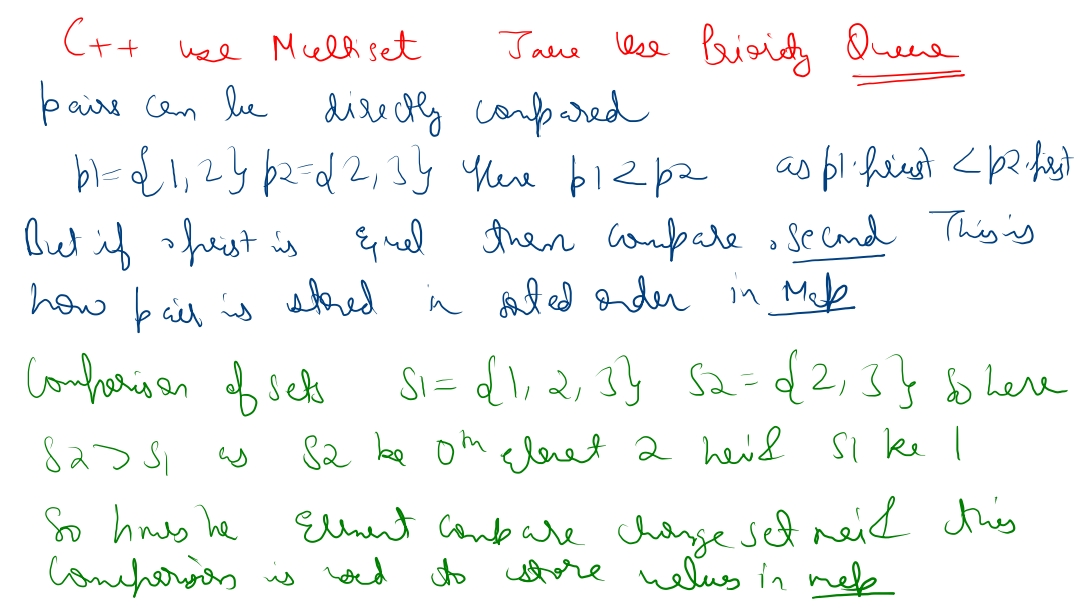 C++ use Multiset Java Use Priority Queue
pairs can be directly compared
p1={1,2} p2={2,3} Here p1<p2 as p1.first <p2.first
But if .first is Equal then compare .second This is
how pair is stored in sorted order in Map
Comparison of sets S1={1,2,3} S2={2,3} So here
S2>S1 as S2 ke 0th element 2 hai & S1 ke 1
So Element compare set mei & this
Comparison is used to store values in map